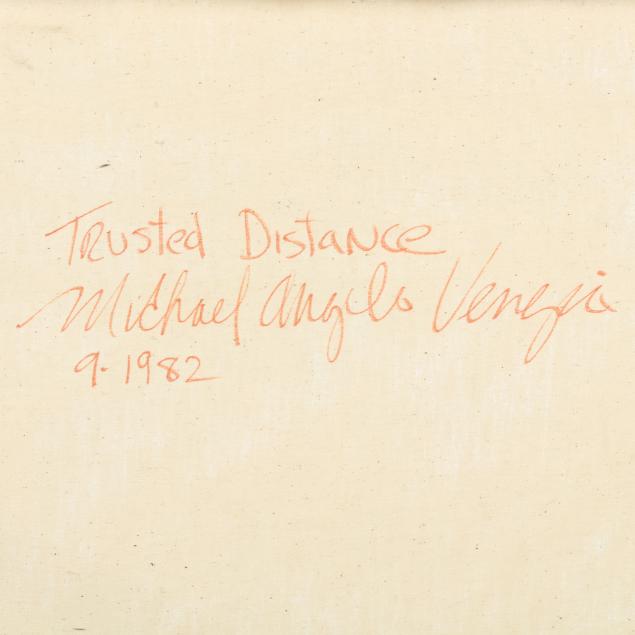 Trusted Distance
Michael Angelo Venezia
9-1982